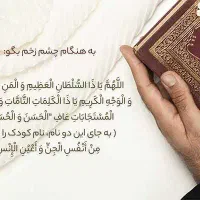 به هنگام چشم زخم بگو:
اللَّهُمَّ يَا ذَا السُّلْطَانِ الْعَظِيمِ وَ الْمَنِّ
وَ الْوَجْهِ الْكَرِيمِ يَا ذَا الْكَلِمَاتِ التَّامَّاتِ وَ
الْمُسْتَجَابَاتِ عَافِ "الْحَسَنَ وَ الْحُسَ
( به جای این دو نام، نام کودک را
مِنْ أَنْفُسِ الْجِنِّ وَ أَعْيُنِ الْإِنْسِ